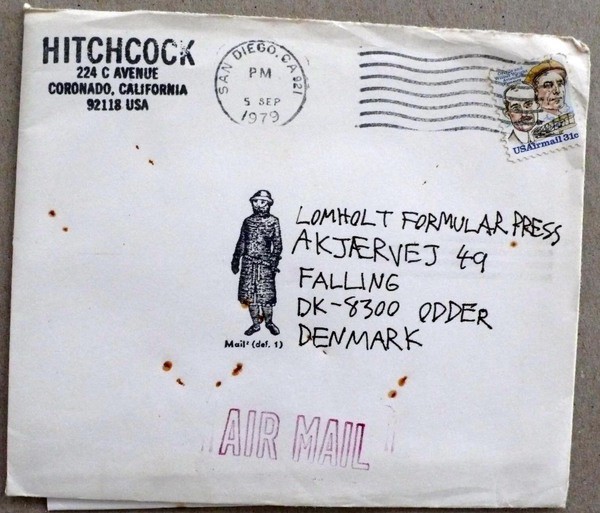 HITCHCOCK
224 C AVENUE
CORONADO, CALIFORNIA
92118 USA
SAN DIEGO, CA 921
PM
5 SEP
1979
USAirmail 31c
LOMHOLT FORMULAR PRESS
AKJÆRVEJ 49
FALLING
DK-8300 ODDER
DENMARK
Mail² (def. 1)
AIR MAIL